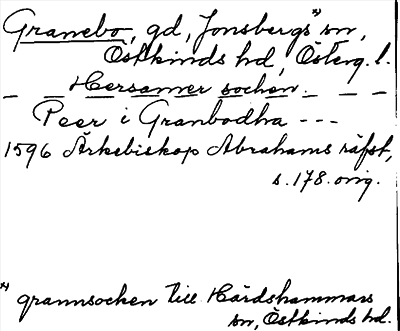 Granebo, gd, Jonsbergs *) sn,
Östkinds hd, Österg. l.
_ _ Hersamer sochen _ _ _
Peer i Granbodha - - -
1596 Ärkebiskop Abrahams räfst,
s. 178. orig.
*) grannsocken till Härdshammars
sn, Östkinds hd.